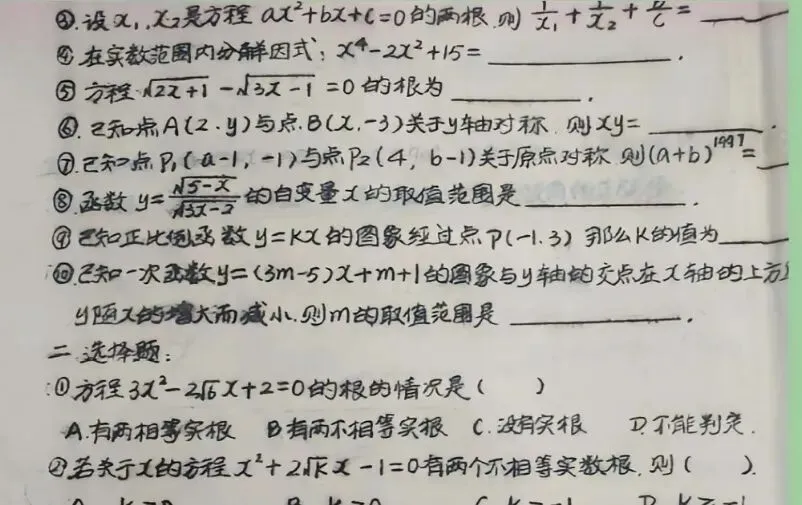 ③.设x₁,x₂是方程 ax²+bx+c=0的两根.则 1/x₁+1/x₂+ /c=
④在实数范围内分解因式:x⁴-2x²+15= .
⑤方程√(2x+1)-√(3x-1)=0的根为 .
⑥.已知点A(2.y)与点B(x,-3)关于y轴对称.则xy= .
⑦.已知点P₁(a-1,-1)与点P₂(4,b-1)关于原点对称.则(a+b)¹⁹⁹⁷=
⑧函数y=√(5-x)/√(3x-2)的自变量x的取值范围是 .
⑨已知正比例函数y=kx的图象经过点P(-1.3)那么k的值为
⑩已知一次函数y=(3m-5)x+m+1的图象与y轴的交点在x轴的上方
y随x的增大而减小.则m的取值范围是 .
二.选择题:
①方程3x²-2√6x+2=0的根的情况是( )
A.有两相等实根 B.有两不相等实根 C.没有实根 D.不能判定.
②若关于x的方程x²+2√k x-1=0有两个不相等实数根.则( ).